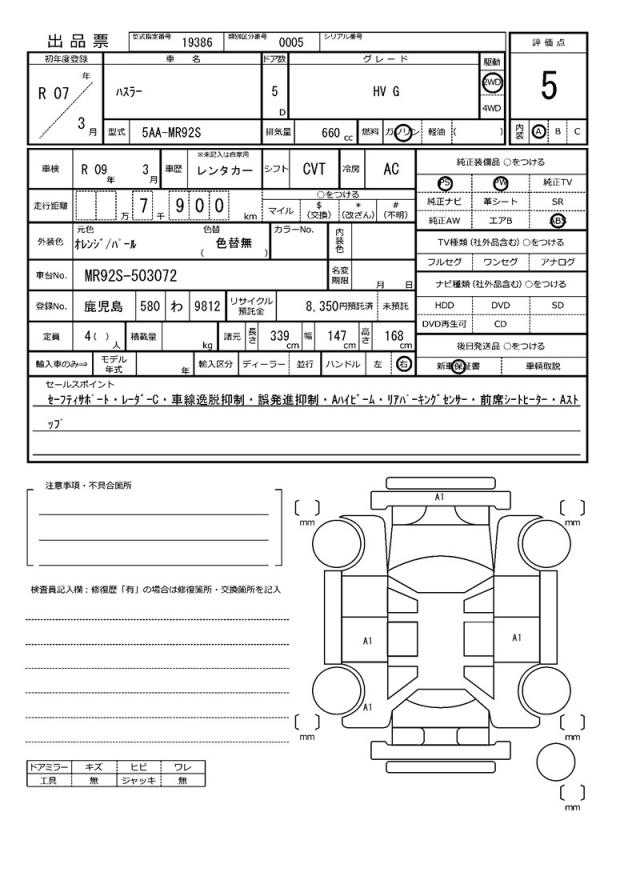 出品票
型式指定番号 19386 類別区分番号 0005 シリアル番号
初年度登録 車名 ドア数 グレード 駆動 評価点
R 07 年 3 月 ハスラー 5 D HV G 2WD 4WD 5
型式 5AA-MR92S 排気量 660 cc 燃料 ガソリン 軽油 ( ) 内装 A B C
車検 R 09 年 3 月 車歴 ※未記入は自家用 レンタカー シフト CVT 冷房 AC
走行距離 万 7 千 9 0 0 km ○をつける
マイル $ (交換) * (改ざん) # (不明)
外装色 元色 オレンジ/パール 色替 色替無 ( ) カラーNo. 内装色
車台No. MR92S-503072 名変期限 月 日
登録No. 鹿児島 580 わ 9812 リサイクル預託金 8,350円預託済 未預託
定員 4 ( ) 人 積載量 kg 諸元 長さ 339 cm 幅 147 cm 高さ 168 cm
輸入車のみ⇒ モデル年式 年 輸入区分 ディーラー 並行 ハンドル 左 右
純正装備品 ○をつける
PS PW 純正TV
純正ナビ 革シート SR
純正AW エアB ABS
TV種類 (社外品含む) ○をつける
フルセグ ワンセグ アナログ
ナビ種類 (社外品含む) ○をつける
HDD DVD SD
DVD再生可 CD
後日発送品 ○をつける
新車保証書 車輌取説
セールスポイント
セーフティサポート・レーダーC・車線逸脱抑制・誤発進抑制・Aハイビーム・リアパーキングセンサー・前席シートヒーター・Aスト
ップ
注意事項・不具合箇所
検査員記入欄：修復歴「有」の場合は修復箇所・交換箇所を記入
ドアミラー キズ ヒビ ワレ
工具 無 ジャッキ 無
A1
mm mm
A1 A1
A1
mm mm
mm